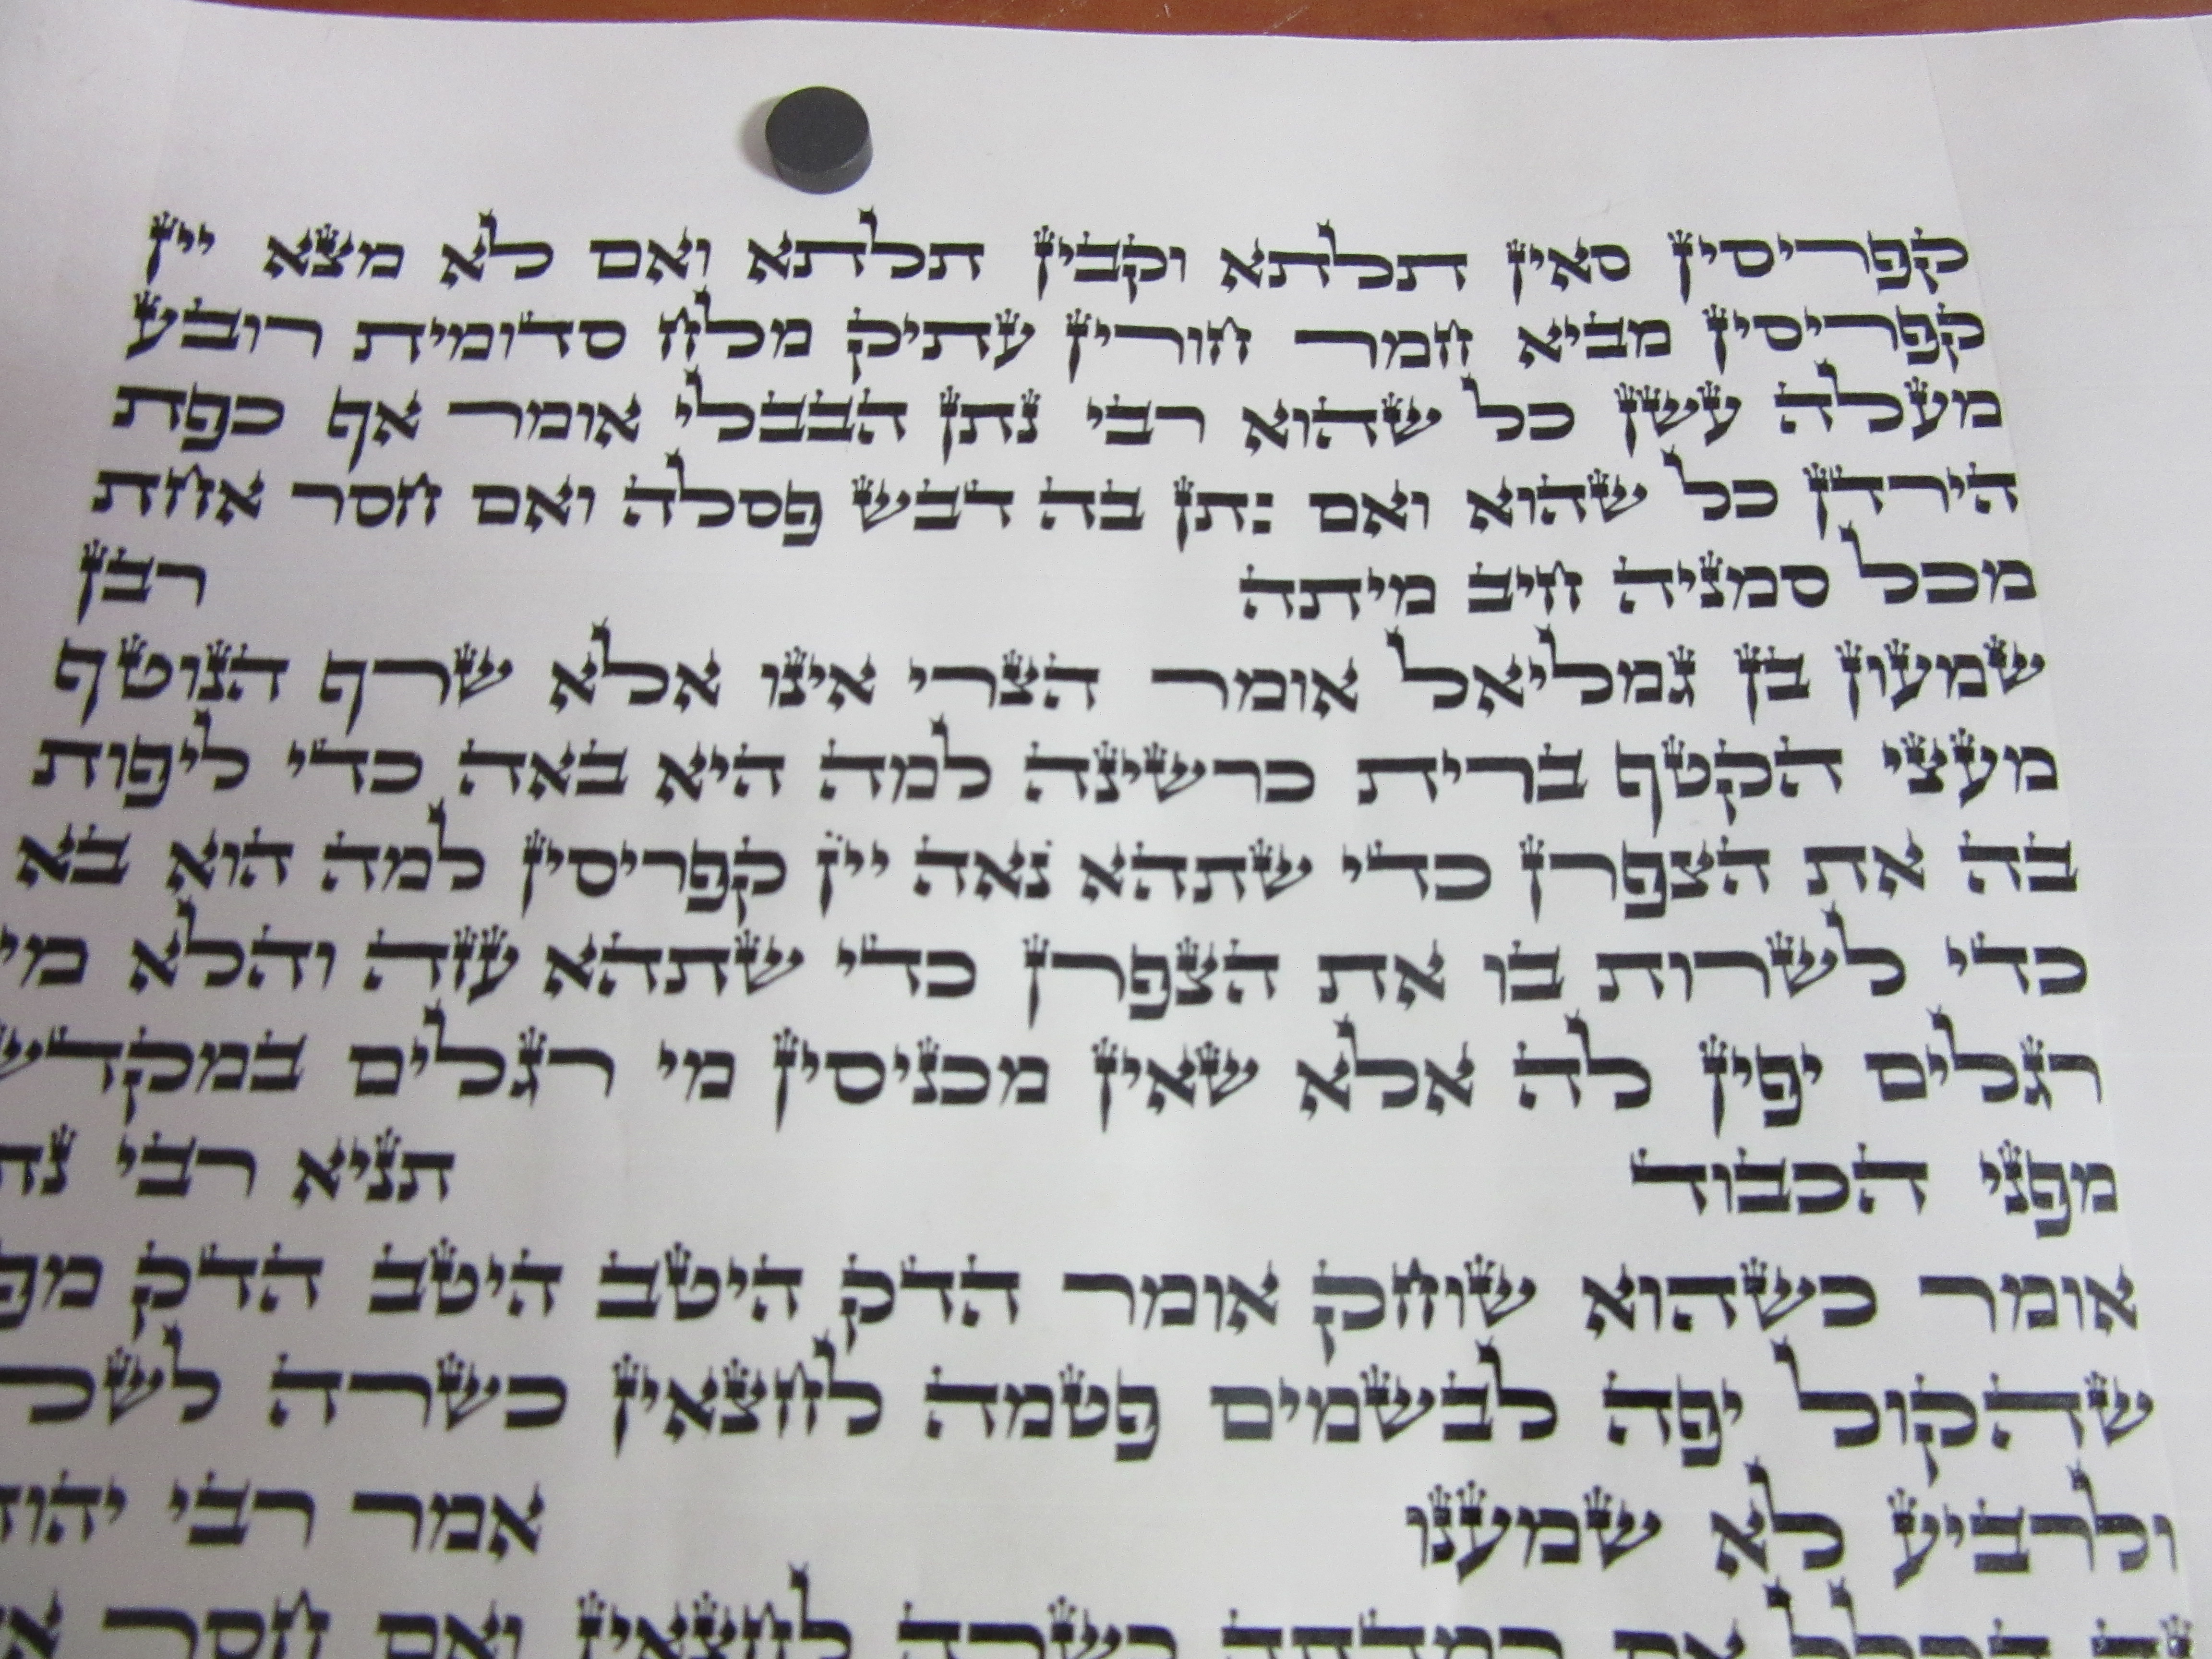 קפריסין סאין תלתא וקבין תלתא ואם לא מצא יין
קפריסין מביא חמר חורין עתיק מלח סדומית רובע
מעלה עשן כל שהוא רבי נתן הבבלי אומר אף כפת
הירדן כל שהוא ואם נתן בה דבש פסלה ואם חסר אחת
מכל סמניה חיב מיתה רבן
שמעון בן גמליאל אומר הצרי אינו אלא שרף הנוטף
מעצי הקטף ברית כרשינה למה היא באה כדי ליפות
בה את הצפרן כדי שתהא נאה יין קפריסין למה הוא בא
כדי לשרות בו את הצפרן כדי שתהא עזה והלא מי
רגלים יפין לה אלא שאין מכניסין מי רגלים במקדש
מפני הכבוד תניא רבי נת
אומר כשהוא שוחק אומר הדק היטב היטב הדק מפ
שהקול יפה לבשמים פטמה לחצאין כשרה לשל
ולרביע לא שמענו אמר רבי יהוד
הכלל אם כמדתה כשרה לחצאין ואם חסר א